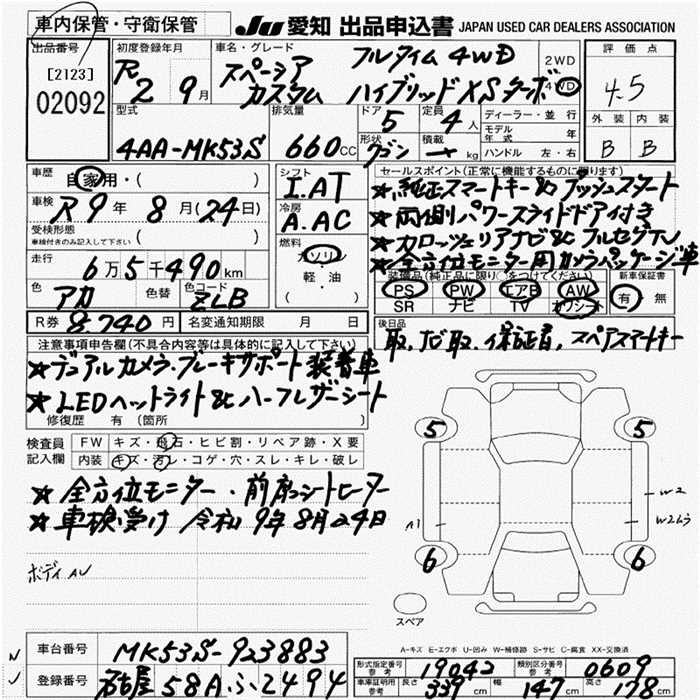 車内保管・守衛保管
JU 愛知 出品申込書 JAPAN USED CAR DEALERS ASSOCIATION
出品番号
[2123]
02092
初度登録年月 R2 9月
車名・グレード スペーシア カスタム フルタイム4WD ハイブリッドXSターボ
2WD
4WD
評価点 4.5
外装 内装
B B
型式 4AA-MK53S
排気量 660cc
ドア 5
定員 4人
形状 ワゴン
積載 ー kg
ディーラー・並行
モデル年式 年
ハンドル 左・右
車歴 自家用・( )
車検 R9年8月(24日)
受検形態
車検付きのみ記入して下さい ( )
走行 6万5千490km
色 アカ 色替 色コード ZLB
R券 8,740円 名変通知期限 月 日
シフト I.AT
冷房 A.AC
燃料 ガソリン
軽・油
( )
セールスポイント(正常に機能するものに限ります)
★純正スマートキー&プッシュスタート
★両側パワースライドドア付き
★カロッツェリアナビ&フルセグTV
★全方位モニター用カメラパッケージ車
装備品(純正品に限り○をつけてください)
PS PW エアB AW
SR ナビ TV カワシート
新車保証書
有・無
後日品 取、ナビ取、保証書、スペアスマートキー
注意事項申告欄(不具合内容等は具体的に記入して下さい)
★デュアルカメラ・ブレーキサポート装着車
★LEDヘットライト&ハーフレザーシート
修復歴 有(箇所 )
検査員記入欄
FW キズ・飛石・ヒビ割・リペア跡・X要
内装 キズ・汚レ・コゲ・穴・スレ・キレ・破レ
★全方位モニター・前席シートヒーター
★車検受け 令和9年8月24日
ボディAU
5 5
A1
W2
W2ムラ
6 6
スペア
A-キズ E-エクボ U-凹み W-補修跡 S-サビ C-腐食 XX-交換済
車台番号 MK53S-923883
登録番号 名古屋 58A ふ 2494
形式指定番号 参考 19042
類別区分番号 参考 0609
車庫証明用 参考 長さ 339cm 幅 147cm 高さ 178cm